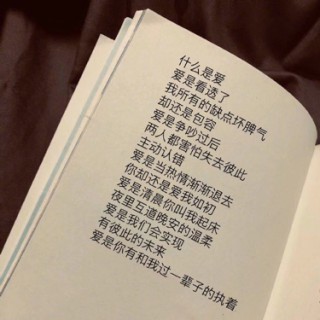 什么是爱
爱是看透了
我所有的缺点坏脾气
却还是包容
爱是争吵过后
两人都害怕失去彼此
主动认错
爱是当热情渐渐退去
你却还是爱我如初
爱是清晨你叫我起床
夜里互道晚安的温柔
爱是我们会实现
有彼此的未来
爱是你有和我过一辈子的执着